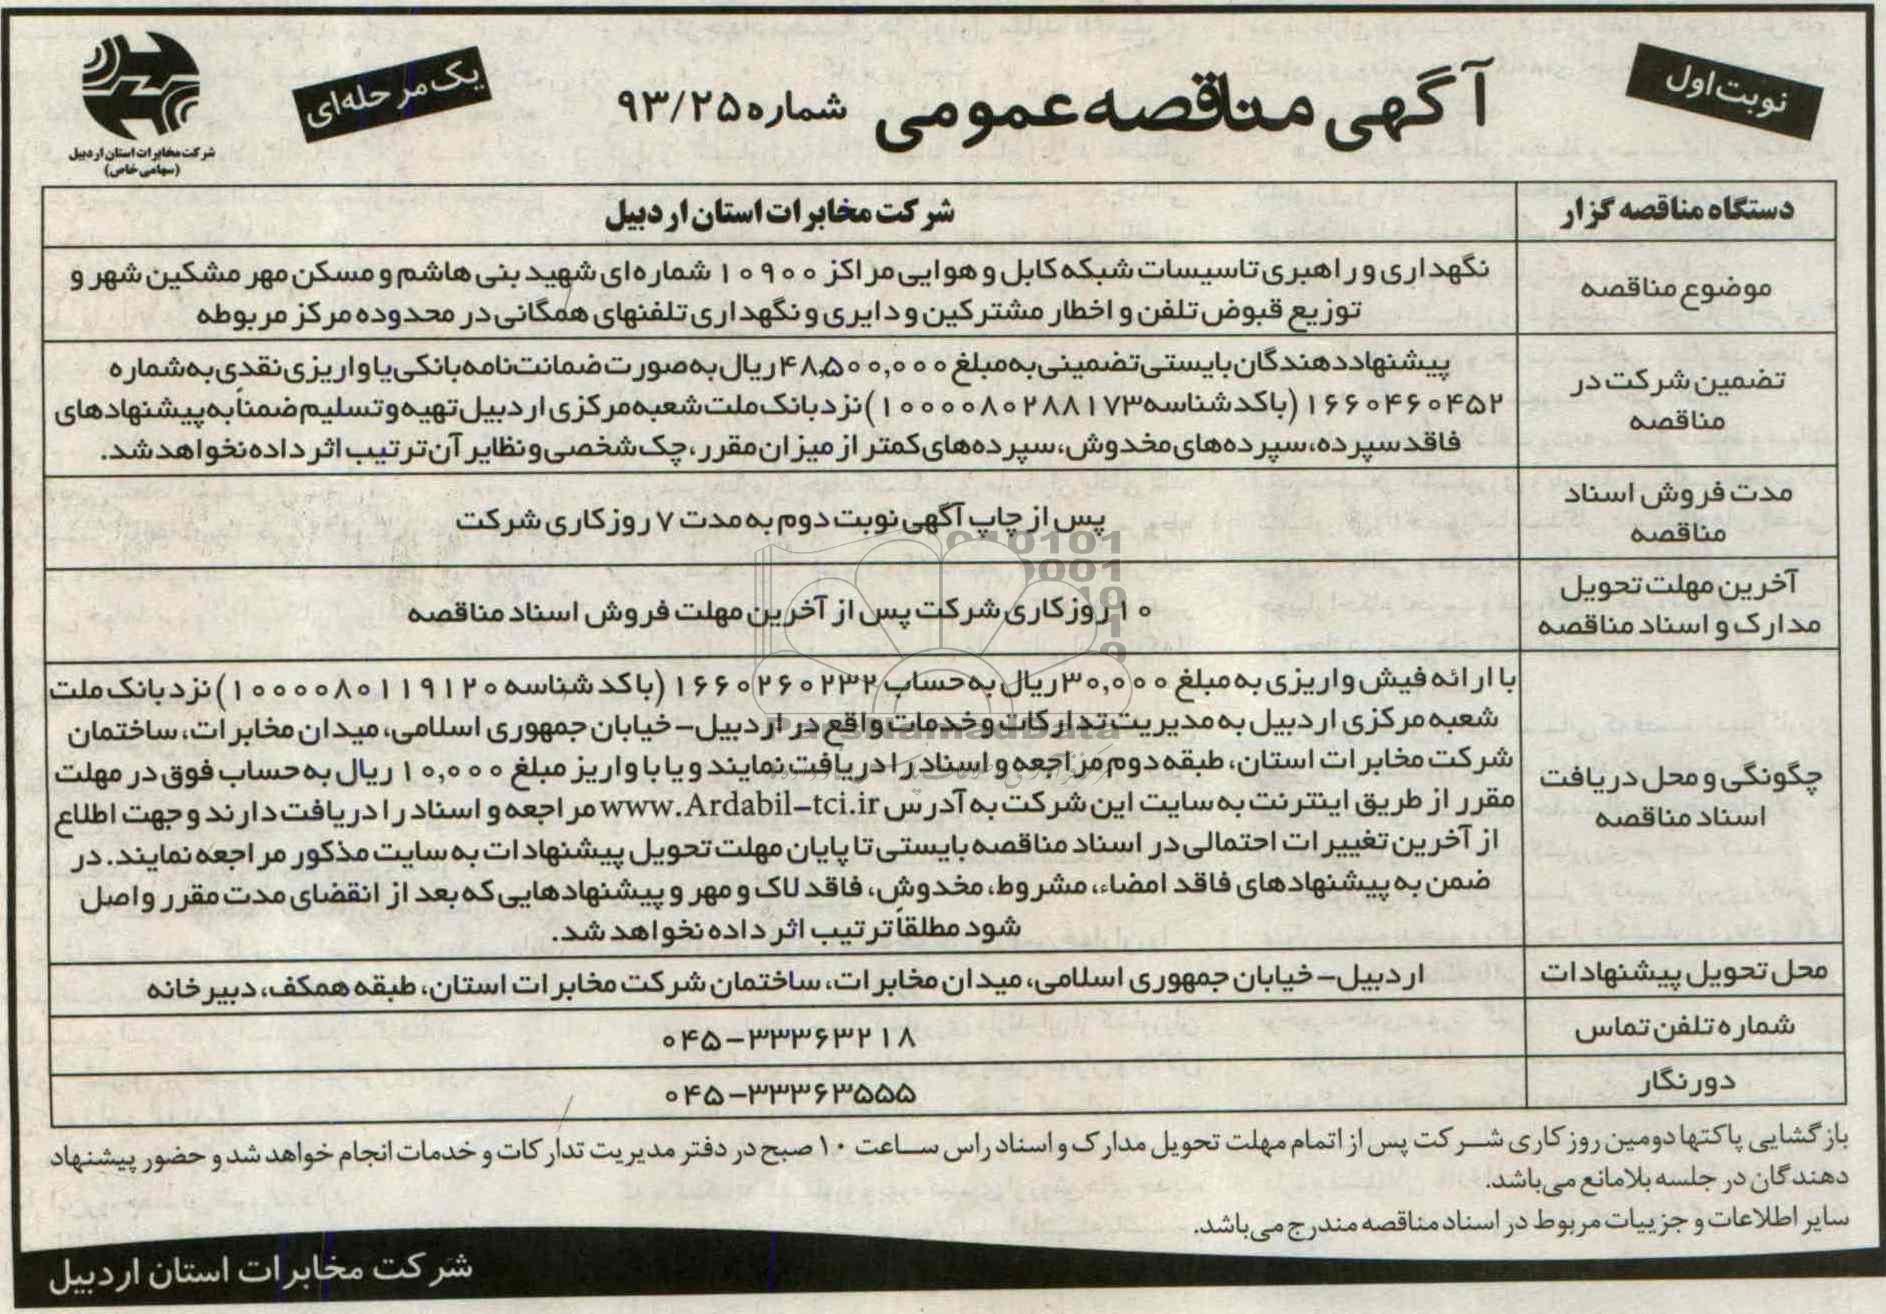 نوبت اول
آگهی مناقصه عمومی شماره ۹۳/۲۵
یک مرحله‌ای
شرکت مخابرات استان اردبیل
(سهامی خاص)
دستگاه مناقصه گزار
شرکت مخابرات استان اردبیل
موضوع مناقصه
نگهداری و راهبری تاسیسات شبکه کابل و هوایی مراکز ۱۰۹۰۰ شماره‌ای شهید بنی هاشم و مسکن مهر مشکین شهر و
توزیع قبوض تلفن و اخطار مشترکین و دایری و نگهداری تلفنهای همگانی در محدوده مرکز مربوطه
تضمین شرکت در
مناقصه
پیشنهاددهندگان بایستی تضمینی به مبلغ ۴۸,۵۰۰,۰۰۰ ریال به صورت ضمانت نامه بانکی یا واریزی نقدی به شماره
۱۶۶۰۴۶۰۴۵۲ (باکد شناسه ۱۰۰۰۰۸۰۲۸۸۱۷۳) نزد بانک ملت شعبه مرکزی اردبیل تهیه و تسلیم ضمناً به پیشنهادهای
فاقد سپرده، سپرده‌های مخدوش، سپرده‌های کمتر از میزان مقرر، چک شخصی و نظایر آن ترتیب اثر داده نخواهد شد.
مدت فروش اسناد
مناقصه
پس از چاپ آگهی نوبت دوم به مدت ۷ روز کاری شرکت
آخرین مهلت تحویل
مدارک و اسناد مناقصه
۱۰ روز کاری شرکت پس از آخرین مهلت فروش اسناد مناقصه
چگونگی و محل دریافت
اسناد مناقصه
با ارائه فیش واریزی به مبلغ ۳۰,۰۰۰ ریال به حساب ۱۶۶۰۲۶۰۲۳۲ (باکد شناسه ۱۰۰۰۰۸۰۱۱۹۱۲۰) نزد بانک ملت
شعبه مرکزی اردبیل به مدیریت تدارکات و خدمات واقع در اردبیل- خیابان جمهوری اسلامی، میدان مخابرات، ساختمان
شرکت مخابرات استان، طبقه دوم مراجعه و اسناد را دریافت نمایند و یا با واریز مبلغ ۱۰,۰۰۰ ریال به حساب فوق در مهلت
مقرر از طریق اینترنت به سایت این شرکت به آدرس www.Ardabil-tci.ir مراجعه و اسناد را دریافت دارند و جهت اطلاع
از آخرین تغییرات احتمالی در اسناد مناقصه بایستی تا پایان مهلت تحویل پیشنهادات به سایت مذکور مراجعه نمایند. در
ضمن به پیشنهادهای فاقد امضاء، مشروط، مخدوش، فاقد لاک و مهر و پیشنهادهایی که بعد از انقضای مدت مقرر واصل
شود مطلقاً ترتیب اثر داده نخواهد شد.
محل تحویل پیشنهادات
اردبیل- خیابان جمهوری اسلامی، میدان مخابرات، ساختمان شرکت مخابرات استان، طبقه همکف، دبیرخانه
شماره تلفن تماس
۰۴۵-۳۳۳۶۳۲۱۸
دورنگار
۰۴۵-۳۳۳۶۳۵۵۵
بازگشایی پاکتها دومین روز کاری شرکت پس از اتمام مهلت تحویل مدارک و اسناد راس ساعت ۱۰ صبح در دفتر مدیریت تدارکات و خدمات انجام خواهد شد و حضور پیشنهاد
دهندگان در جلسه بلامانع می‌باشد.
سایر اطلاعات و جزییات مربوط در اسناد مناقصه مندرج می‌باشد.
شرکت مخابرات استان اردبیل